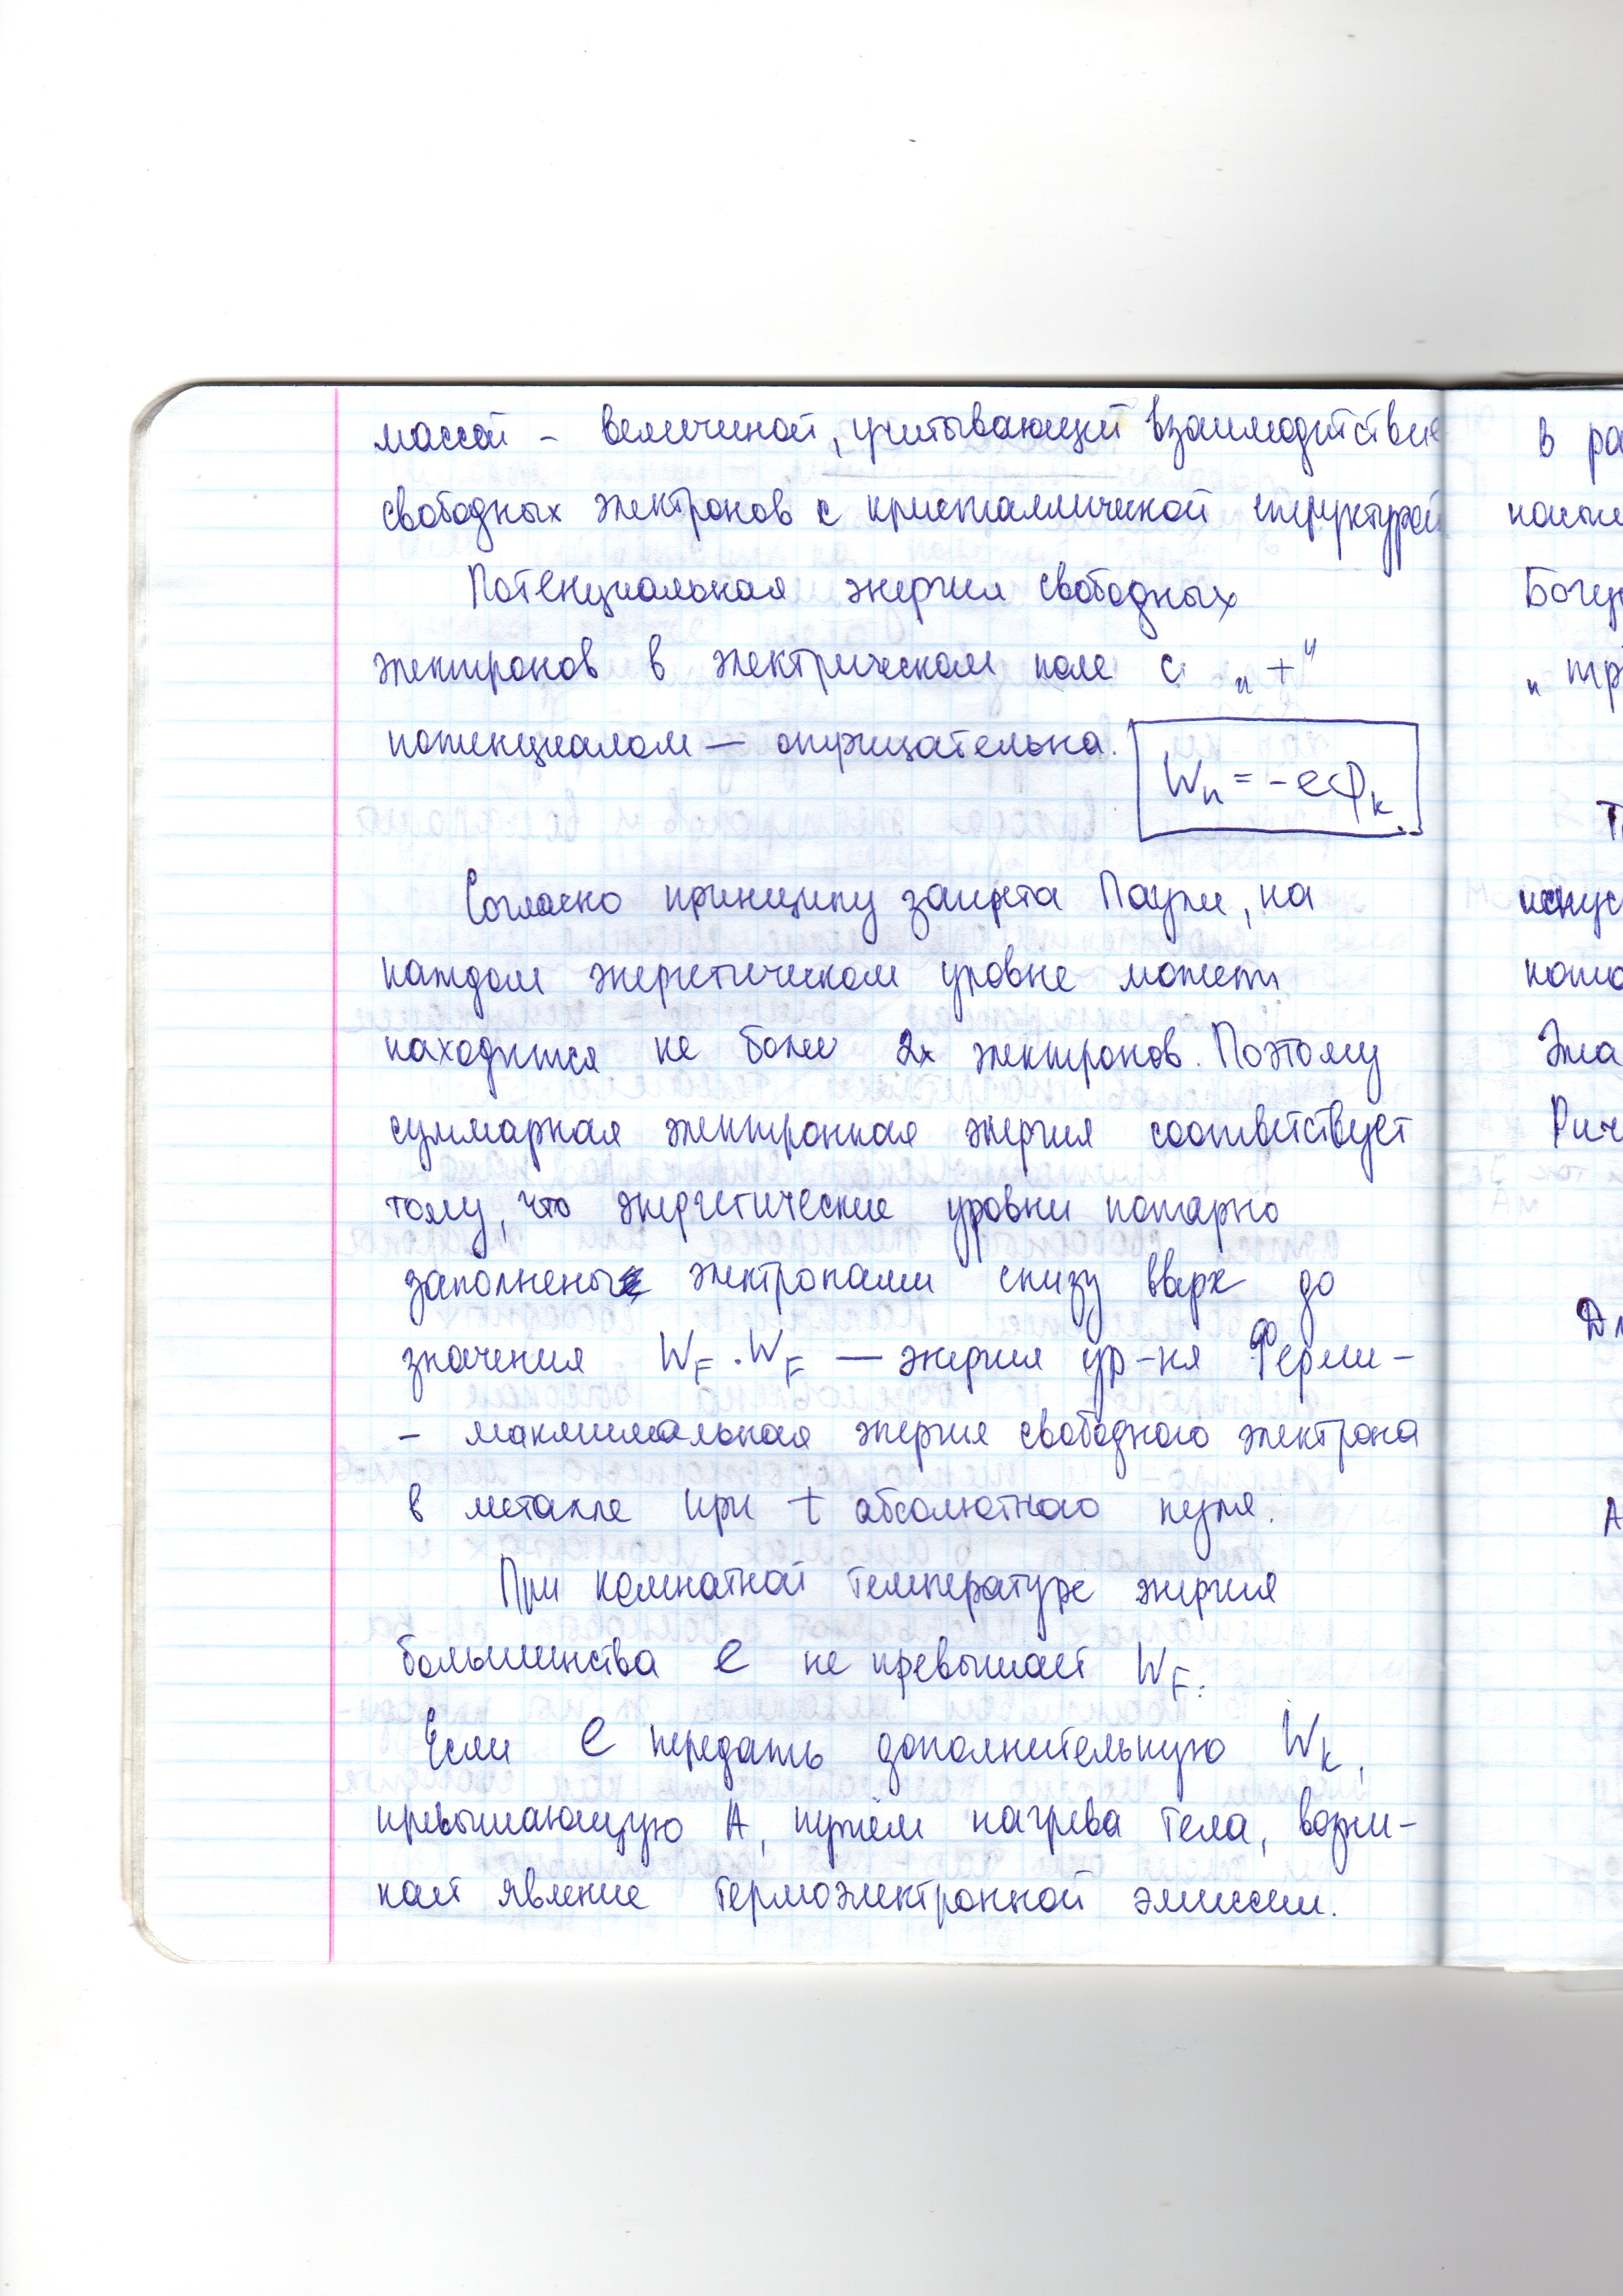 массой - величиной, учитывающей взаимодействие
свободных электронов с кристаллической структурой
Потенциальная энергия свободных
электронов в электрическом поле с „+"
потенциалом — отрицательна.
Wп = -eφк
Согласно принципу запрета Паули, на
каждом энергетическом уровне может
находится не более 2х электронов. Поэтому
суммарная электронная энергия соответствует
тому, что энергетические уровни попарно
заполнены электронами снизу вверх до
значения WF. WF — энергия ур-ня Ферми -
- максимальная энергия свободного электрона
в металле при t абсолютного нуля.
При комнатной температуре энергия
большинства e не превышает WF.
Если e передать дополнительную Wк,
превышающую A, путём нагрева тела, возни-
кает явление термоэлектронной эмиссии.
в ра
Богу
„тр
Эта
Рич
Дл
А